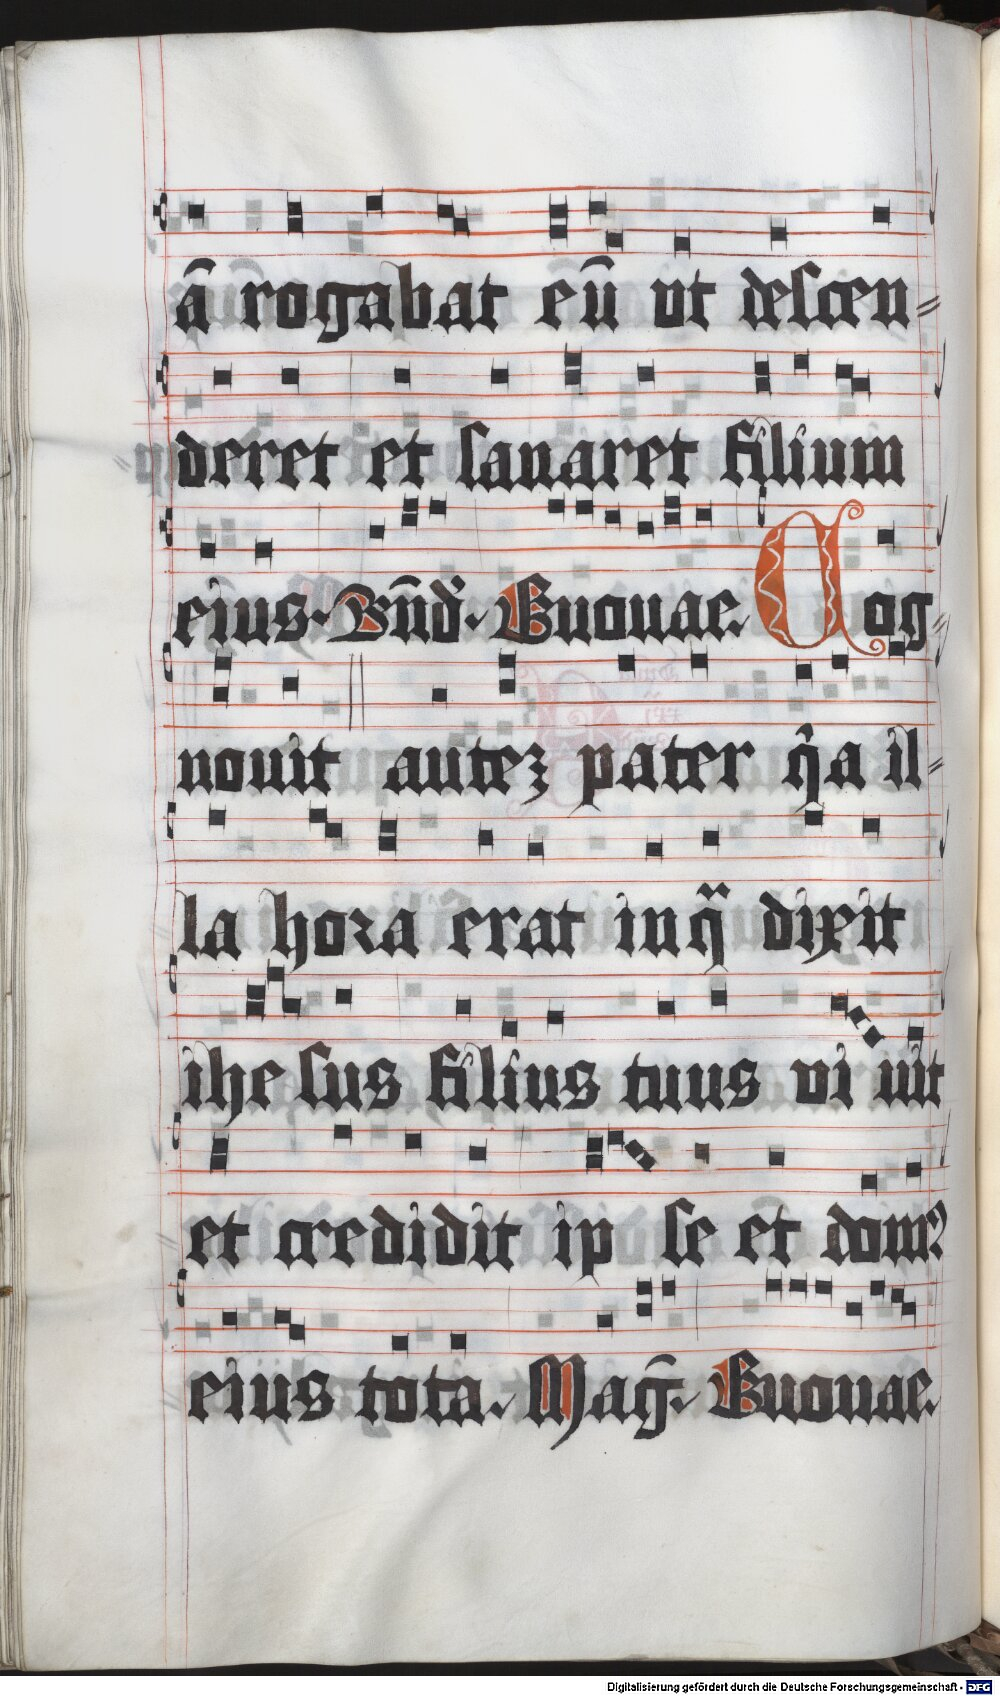 ā rogabat eū ut descen⸗
deret et sanaret filium
eius. Bn̄d̄. Euouae. Cog⸗
nouit autez pater q̇a il⸗
la hora erat in q̈ dixit
ihe sus filius tuus ui uit
et credidit ip se et dom9
eius tota. Mag̅. Euouae.
Digitalisierung gefördert durch die Deutsche Forschungsgemeinschaft - DFG